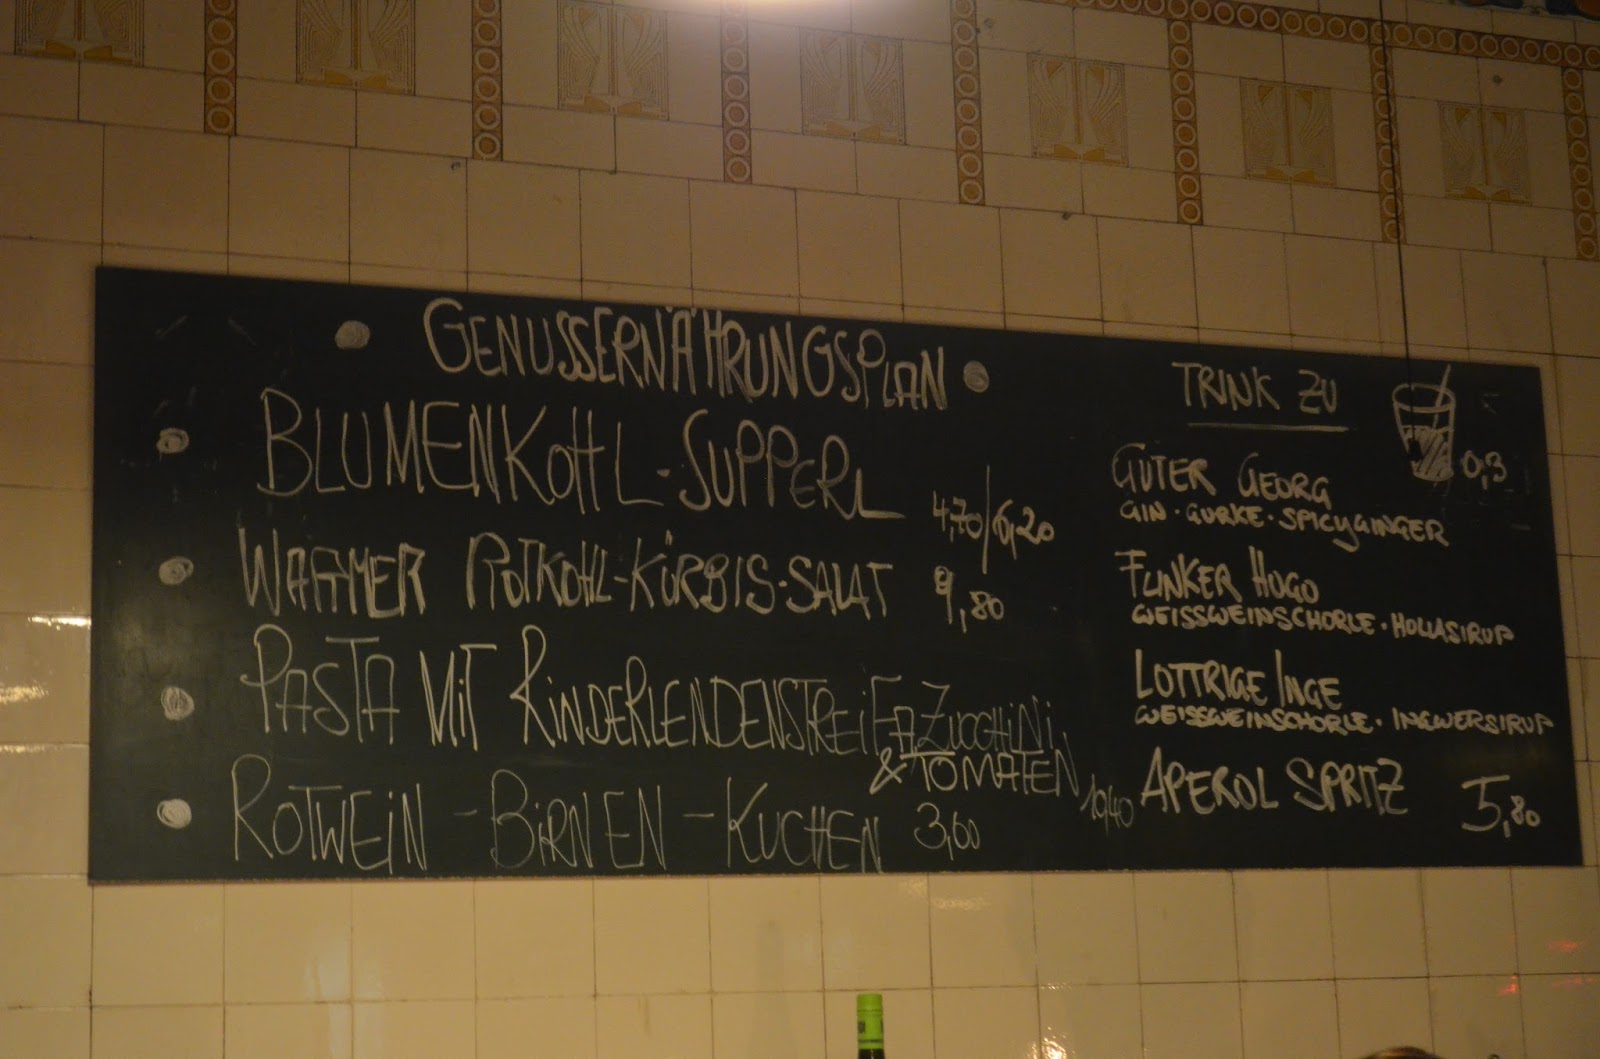 GENUSSERNÄHRUNGSPLAN
BLUMENKOHL-SUPPERL
4,70/6,20
WARMER ROTKOHL-KÜRBIS-SALAT 9,80
PASTA MIT RINDERLENDENSTREIFA ZUCCHINI
& TOMATEN 10,40
ROTWEIN-BIRNEN-KUCHEN 3,60
TRINK ZU
0,3
GUTER GEORG
GIN · GURKE · SPICYGINGER
FLINKER HUGO
WEISSWEINSCHORLE · HOLLASIRUP
LOTTRIGE INGE
WEISSWEINSCHORLE · INGWERSIRUP
APEROL SPRITZ 5,80